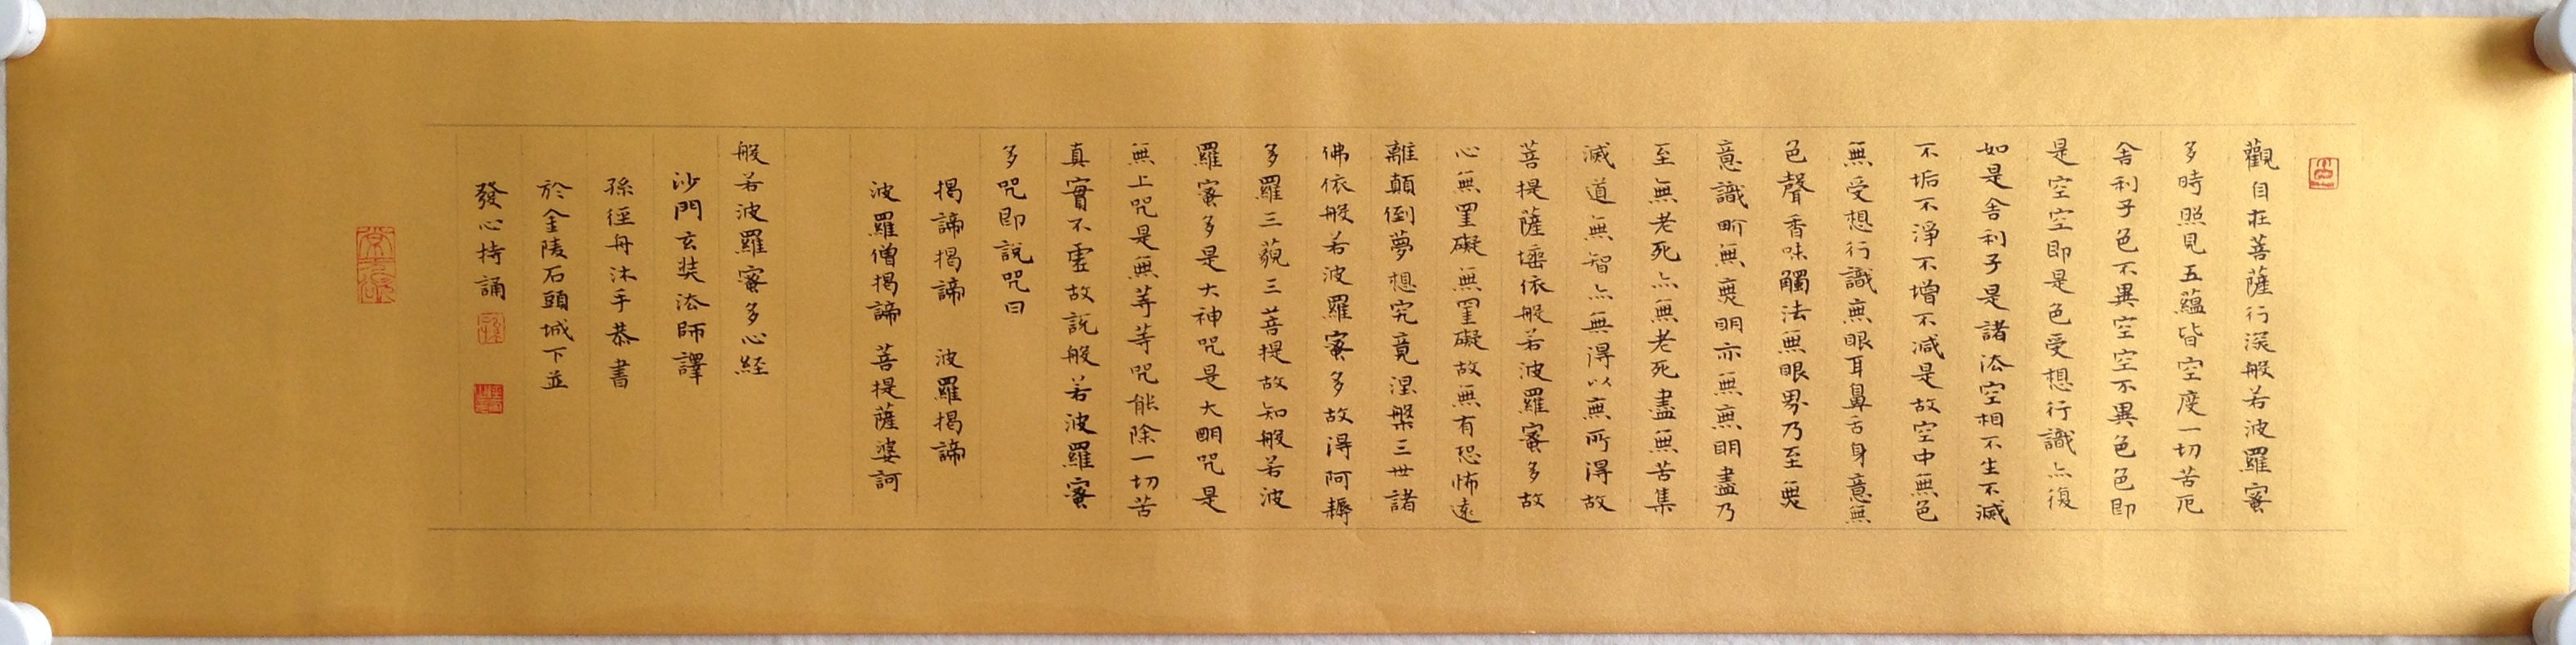 觀自在菩薩行深般若波羅蜜
多時照見五蘊皆空度一切苦厄
舍利子色不異空空不異色色即
是空空即是色受想行識亦復
如是舍利子是諸法空相不生不滅
不垢不淨不增不減是故空中無色
無受想行識無眼耳鼻舌身意無
色聲香味觸法無眼界乃至無
意識界無無明亦無無明盡乃
至無老死亦無老死盡無苦集
滅道無智亦無得以無所得故
菩提薩埵依般若波羅蜜多故
心無罣礙無罣礙故無有恐怖遠
離顛倒夢想究竟涅槃三世諸
佛依般若波羅蜜多故得阿耨
多羅三藐三菩提故知般若波
羅蜜多是大神咒是大明咒是
無上咒是無等等咒能除一切苦
真實不虛故說般若波羅蜜
多咒即說咒曰
揭諦揭諦 波羅揭諦
波羅僧揭諦 菩提薩婆訶
般若波羅蜜多心経
沙門玄奘法師譯
孫徑舟沐手恭書
於金陵石頭城下並
發心持誦